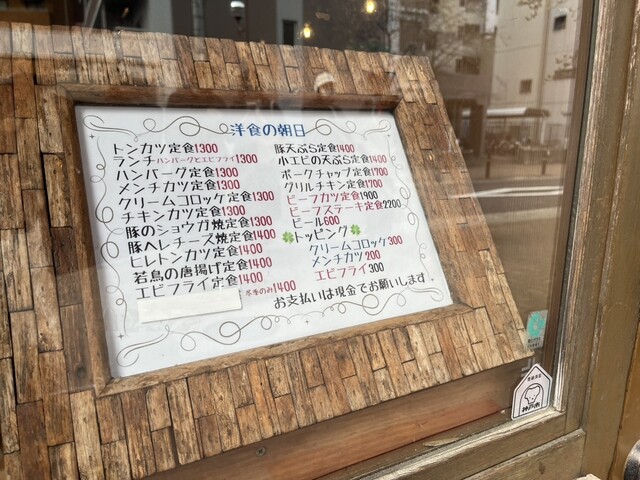 洋食の朝日
トンカツ定食1300
ランチ ハンバーグとエビフライ 1300
ハンバーグ定食1300
メンチカツ定食1300
クリームコロッケ定食1300
チキンカツ定食1300
豚のショウガ焼定食1300
豚ヘレチーズ焼定食1400
ヒレトンカツ定食1400
若鳥の唐揚げ定食1400
エビフライ定食1400
冬季のみ1400
豚天ぷら定食1400
小エビの天ぷら定食1400
ポークチャップ定食1700
グリルチキン定食1700
ビーフカツ定食1900
ビーフステーキ定食2200
ビール600
トッピング
クリームコロッケ300
メンチカツ200
エビフライ300
お支払いは現金でお願いします
神戸市